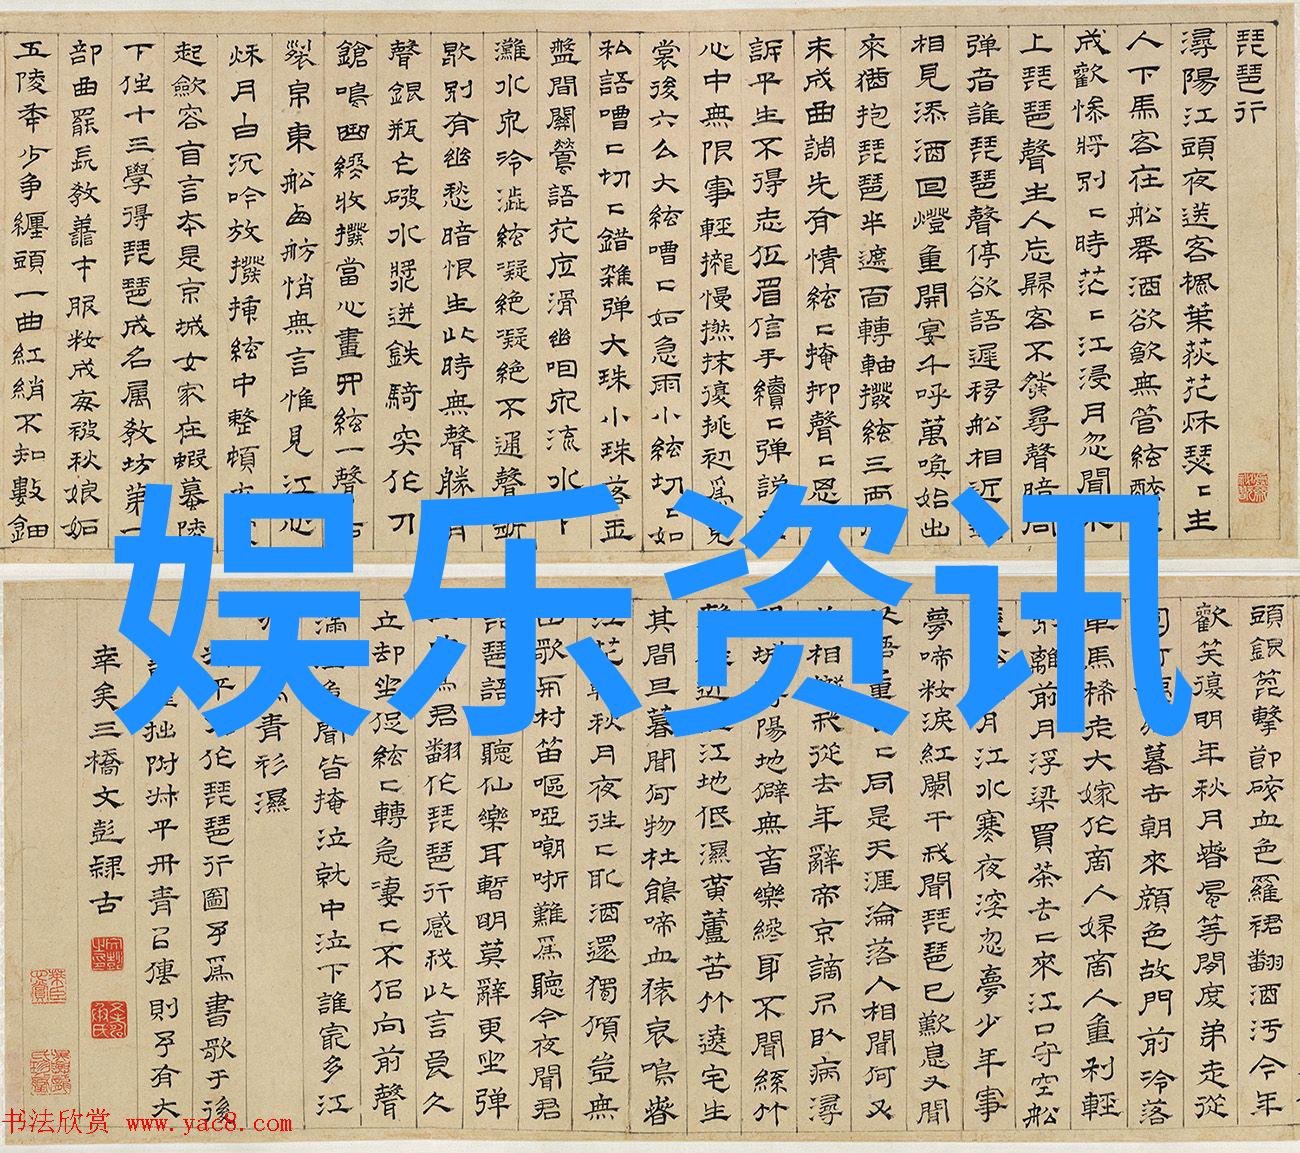 琵琶行
潯陽江頭夜送客楓葉荻花秌瑟〻主
人下馬客在船舉酒欲飲無管絃醉
成歡慘將別〻時茫〻江浸月忽聞水
上琵琶聲主人忘歸客不發尋聲暗問
弹者誰琵琶聲停欲語遲移船相近
相見添酒回燈重開宴千呼萬喚始出
來猶抱琵琶半遮面轉軸撥絃三兩
未成曲調先有情絃〻掩抑聲〻思
訴平生不得志低眉信手續〻弹説
心中無限事輕攏慢撚抹復挑初爲霓
裳後六么大絃嘈〻如急雨小絃切〻如
私語嘈〻切〻錯雜弹大珠小珠落玉
盤間關鶯語花底滑幽咽泉流水下
灘水泉冷澁絃凝絶凝絶不通聲漸
歇別有幽愁暗恨生此時無聲勝有
聲銀瓶乍破水漿迸鉄騎突作刀
鎗鳴曲終收撥當心畫四絃一聲如
裂帛東船西舫悄無言惟見江心
秌月白沉吟放撥揷絃中整頓衣
起斂容自言本是京城女家在蝦蟇陵
下住十三學得琵琶成名属教坊第一
部曲罷長教善才服粧成每被秋娘妬
五陵年少争纏頭一曲紅綃不知數鈿
頭銀篦擊節碎血色羅裙翻酒汚今年
歡笑復明年秋月春風等閒度弟走從
暮去朝來顔色故門前冷落
車馬稀老大嫁作商人婦商人重利輕
別離前月浮梁買茶去〻來江口守空船
月江水寒夜深忽夢少年事
夢啼粧淚紅闌干我聞琵琶已歎息又聞
此語重〻同是天涯淪落人相聞何
必相識我從去年辭帝京謫居臥病潯
陽城潯陽地僻無音樂終歲不聞絲竹
聲住近湓江地低濕黄蘆苦竹遶宅生
其間旦暮聞何物杜鵑啼血猿哀鳴春
江花朝秋月夜往〻取酒還獨傾豈無
山歌與村笛嘔啞嘲哳難爲聽今夜聞君
琵琶語如聽仙樂耳暫明莫辭更坐弹
一曲爲君翻作琵琶行感我此言良久
立却坐促絃〻轉急凄〻不似向前聲
滿座聞皆掩泣就中泣下誰寂多江
州司馬青衫濕
平作琵琶行圖予爲書歌于後
拙附株平丹青以傳則予有大
幸矣三橋文彭隸古
娱乐资讯
书法欣赏 www.yac8.com